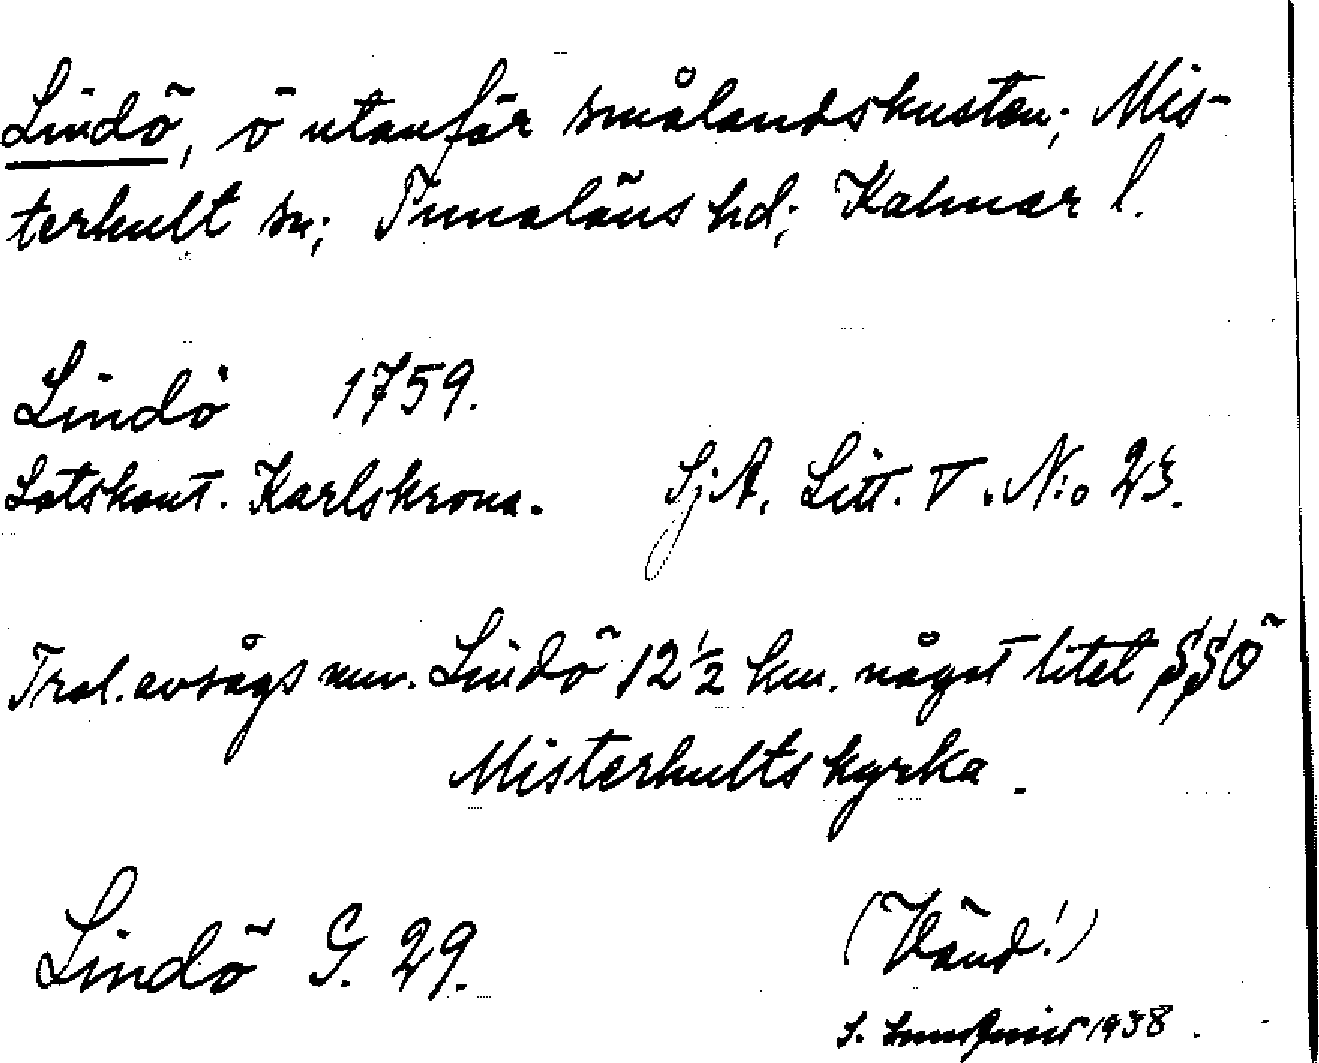 Lindö, ö utanför smålandskusten; Mis-
terhult sn; Tunaläns hd; Kalmar l.
Lindö 1759.
Lotskont. Karlskrona. SjA. Litt. V. N:o 23.
Trol. avsågs nuv. Lindö 12 1/2 km. något litet SSO
Misterhults kyrka.
Lindö G. 29.
(Vänd!)
S. 1938.